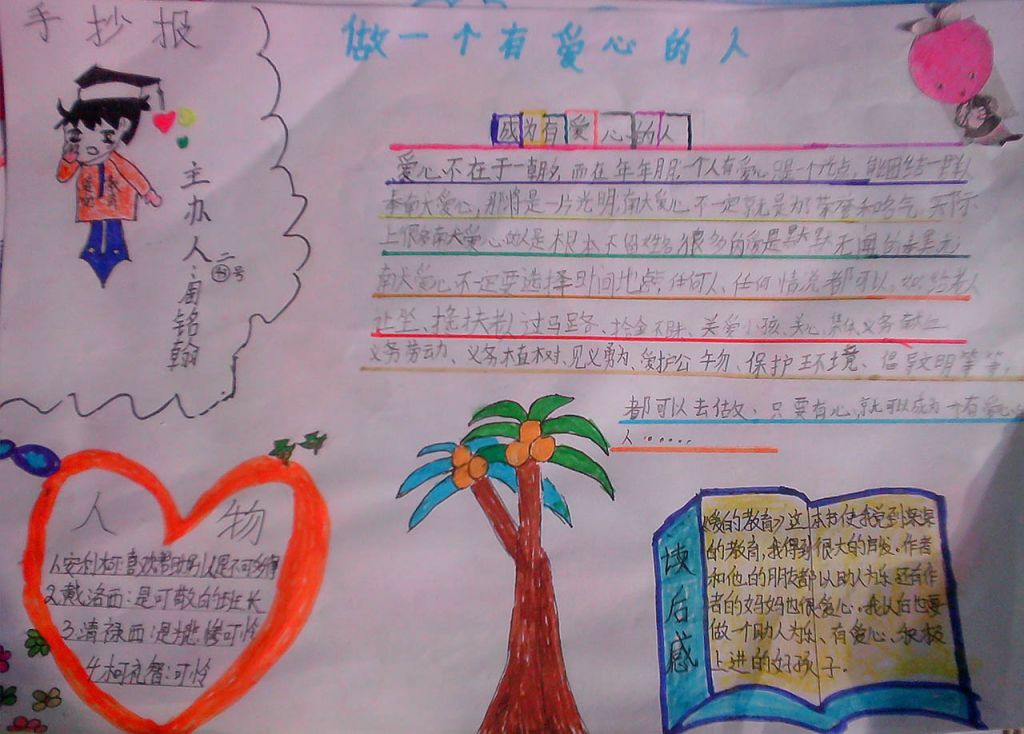 手抄报
做一个有爱心的人
主办人:周铭翰
二号
成为有爱心的人
爱心不在于一朝夕,而在年年月月.一个人有爱心只是一个光点,能团结一群人
奉献大爱心,那将是一片光明.南大爱心不一定就是为荣誉和
上很多南大爱心的人是根本不留姓名很多的贡献是默默无闻的
南大爱心不一定要选择时间地点,任何人、任何情况都可以。如给老人
让坐、搀扶老人过马路、拾金不昧、关爱小孩、关心集体义务献血
义务劳动、义务植树、见义勇为、爱护公物、保护环境、倡导文明等等,
都可以去做、只要有心,就可以成为一个有爱心
人......
人物
1.安利柯:喜欢帮助
2.戴洛西:是可敬的班长
3.清禄西:是悲惨可怜
4.柯礼智:可怜
读后感
《爱的教育》这本书使我受到深深
的教育,我得到很大的启发.作者
和他的朋友都以助人为乐还有作
者的妈妈也很爱心.我以后也要
做一个助人为乐、有爱心、积极
上进的好孩子.